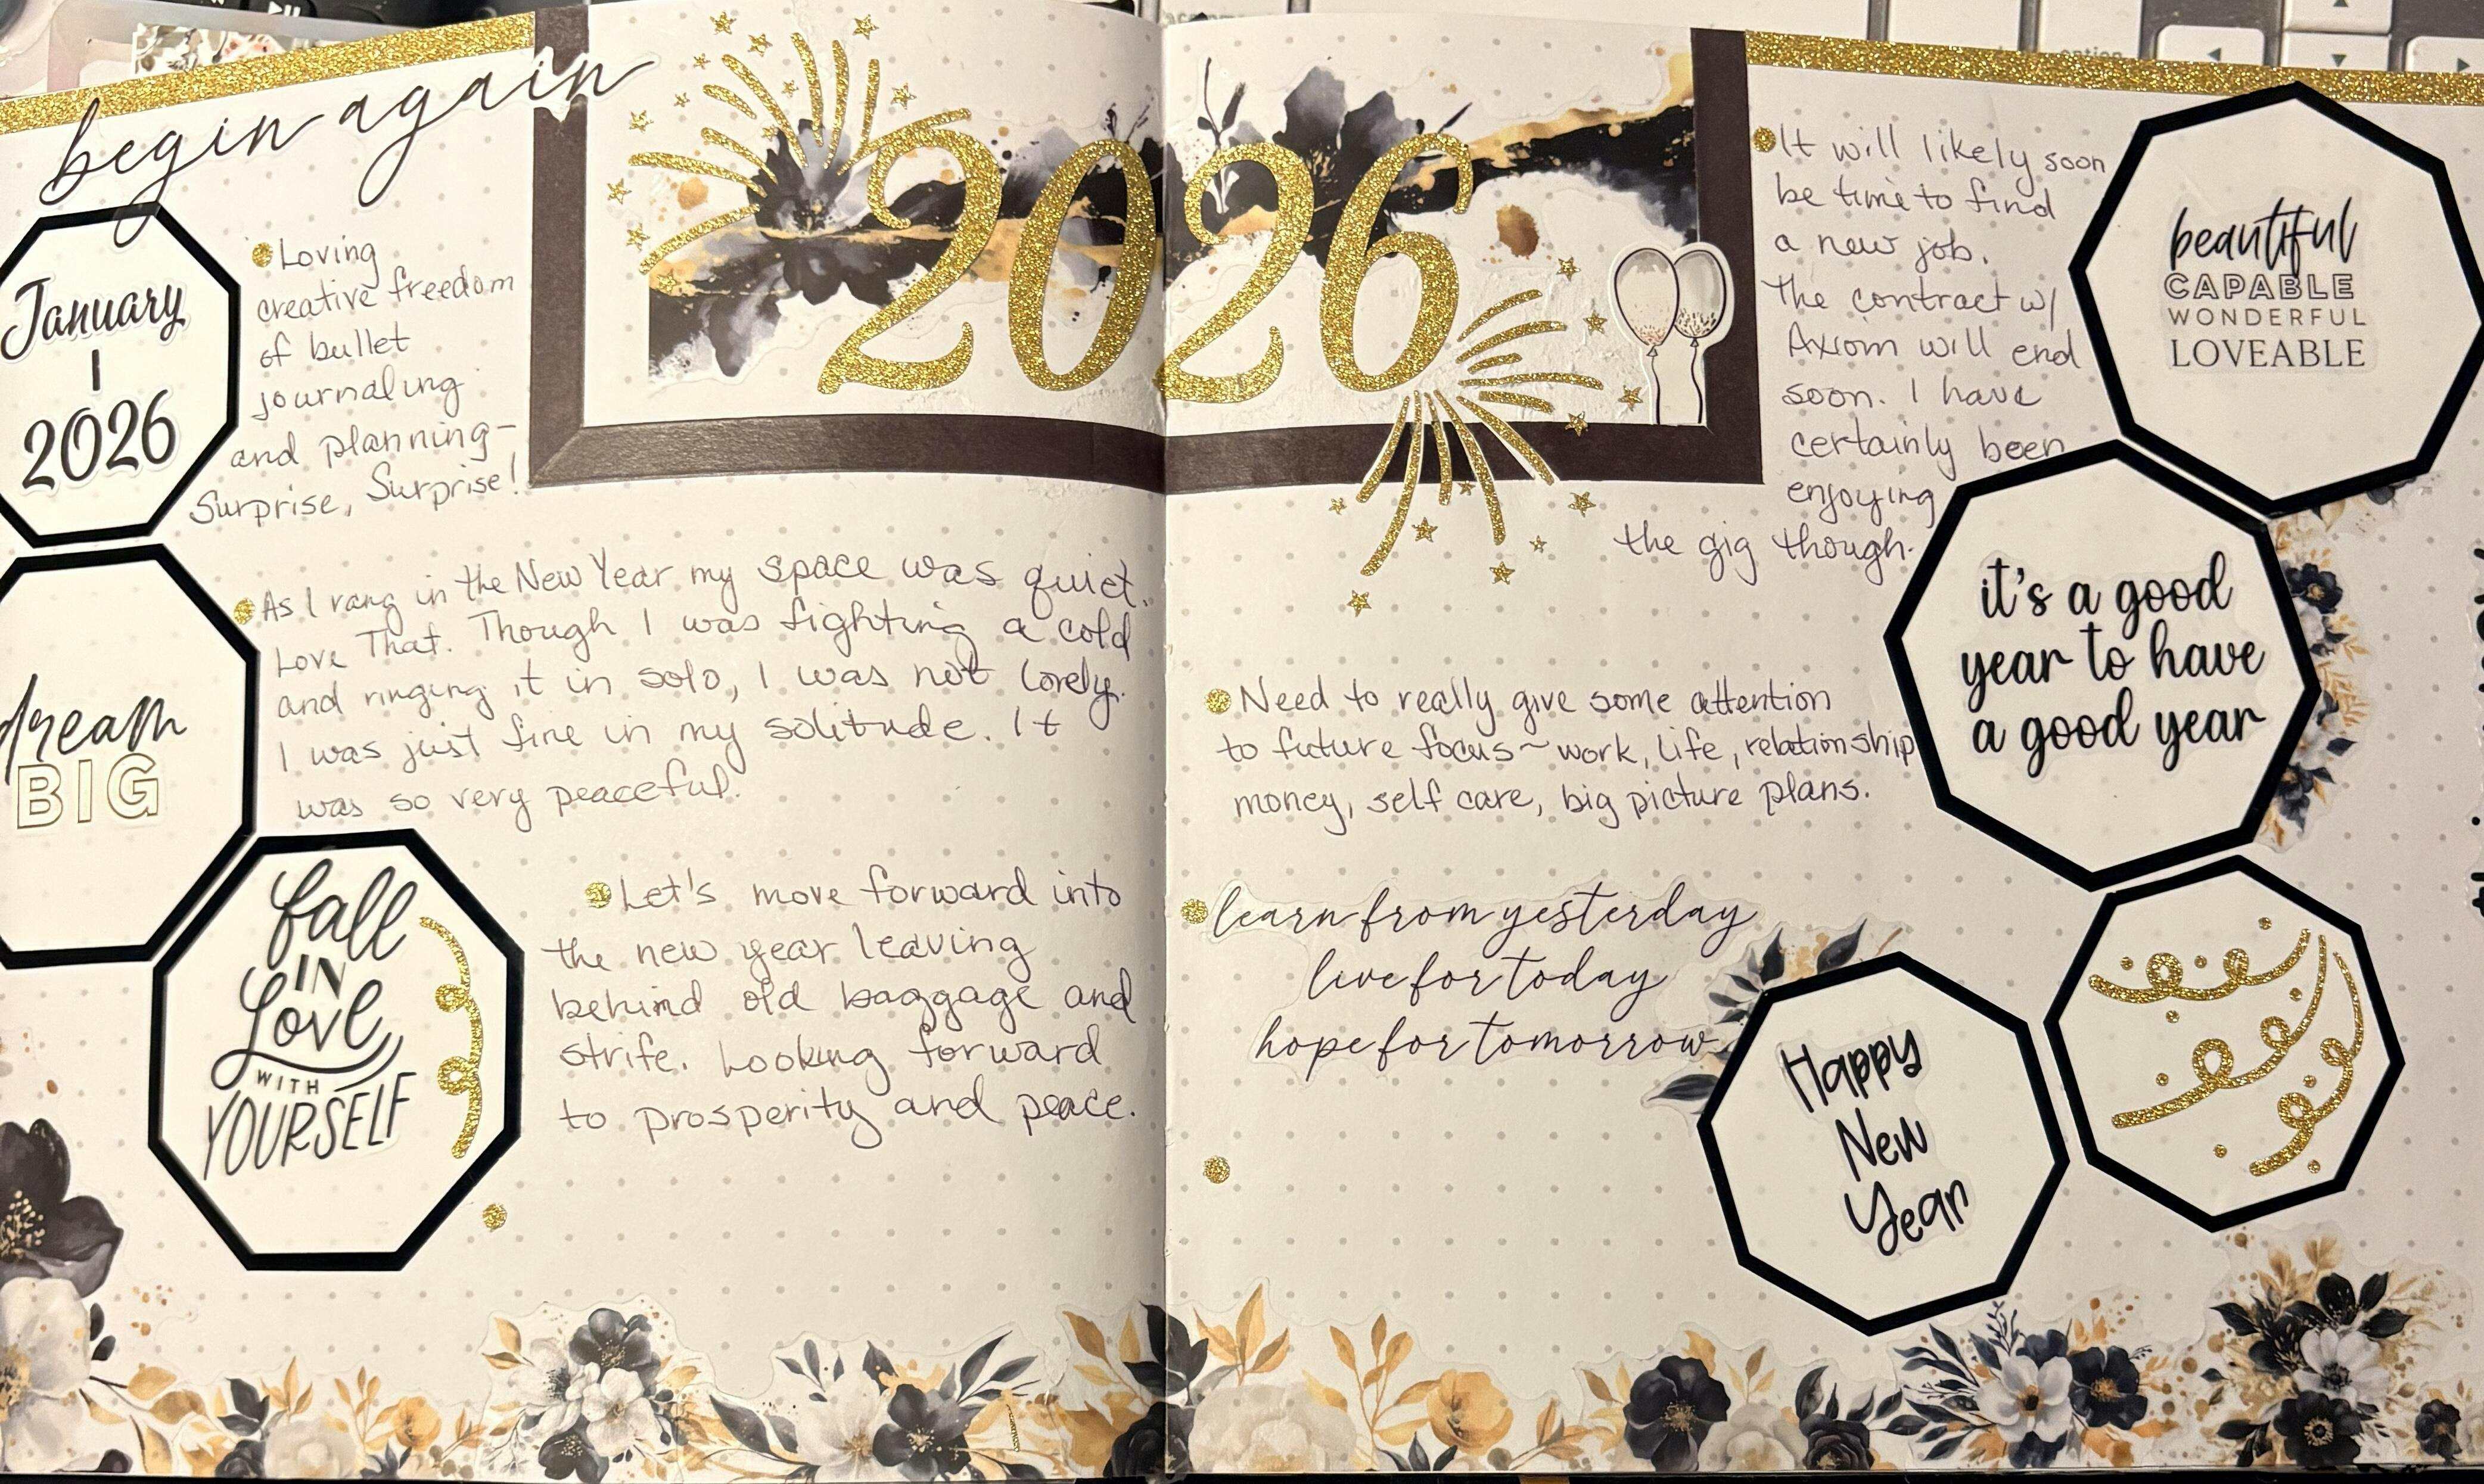 begin again
January
1
2026
Loving
creative freedom
of bullet
journaling
and planning-
Surprise, Surprise!
2026
As I rang in the New Year my space was quiet.
Love That. Though I was fighting a cold
and ringing it in solo, I was not lonely.
I was just fine in my solitude. It
was so very peaceful.
dream
BIG
fall
IN
Love
WITH
YOURSELF
Let's move forward into
the new year leaving
behind old baggage and
strife. Looking forward
to prosperity and peace.
It will likely soon
be time to find
a new job.
The contract w/
Axiom will end
soon. I have
certainly been
enjoying
the gig though.
beautiful
CAPABLE
WONDERFUL
LOVEABLE
it's a good
year to have
a good year
Need to really give some attention
to future focus~work, life, relationship
money, self care, big picture plans.
learn from yesterday
live for today
hope for tomorrow
Happy
New
Year
option